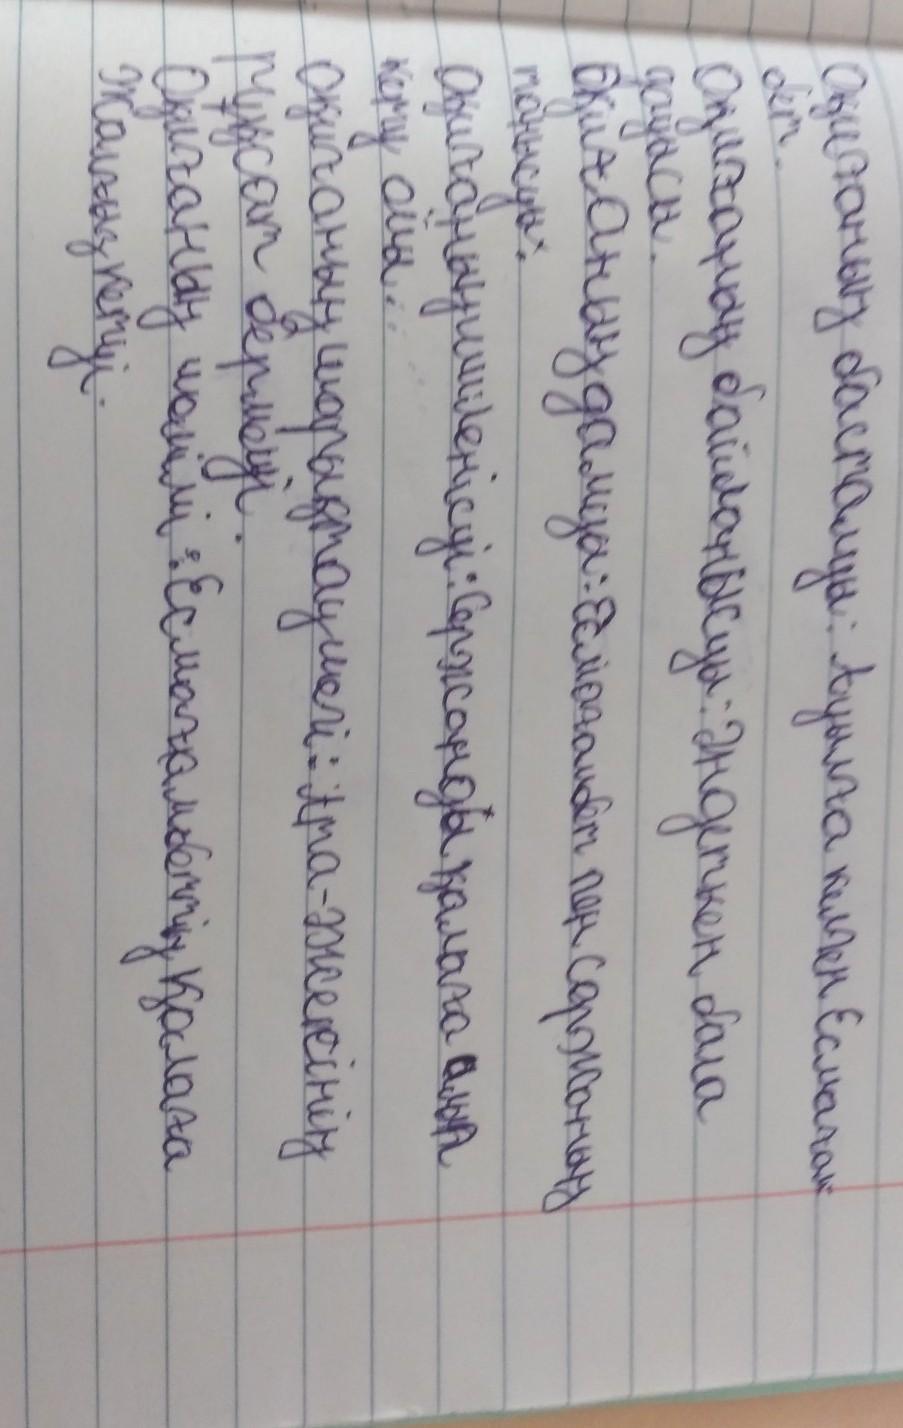 Оқиғаның басталуы: Ауылға келген Есмағам
бет.
Оқиғаның байланысуы: Әндеткен бала
дауысы.
Оқиғаның дамуы: Есмағамбет пен Сержанның
танысуы.
Оқиғаның шиленісуі: Сержанды қалаға алып
кету ойы.
Оқиғаның шарықтау шегі: Ата-әжесінің
Рұқсат бермеуі.
Оқиғаның шешімі: Есмағамбеттің Қалаға
Жалғыз кетуі.